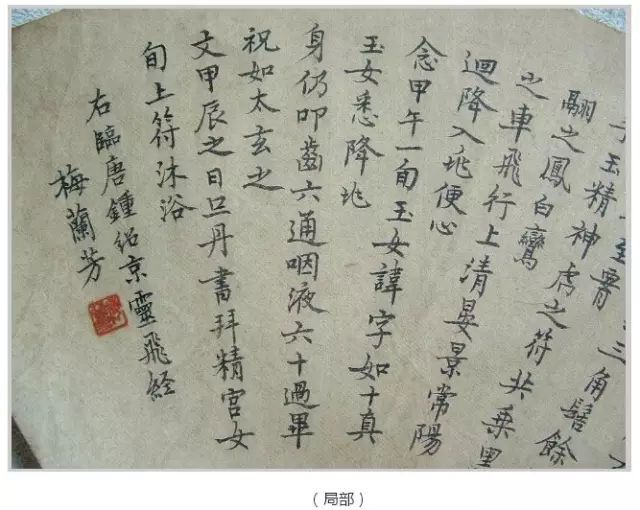 三角髻餘
至
玉精神虎之符共乗黑
翮之鳳白鸞
之車飛行上清晏景常陽
迴降入兆便心
念甲午一旬玉女諱字如十真
玉女悉降兆
身仍叩齒六通咽液六十過畢
祝如太玄之
文甲辰之日旦丹書拜精宫女
旬上符沐浴
右臨唐鍾紹京靈飛経
梅蘭芳
（局部）